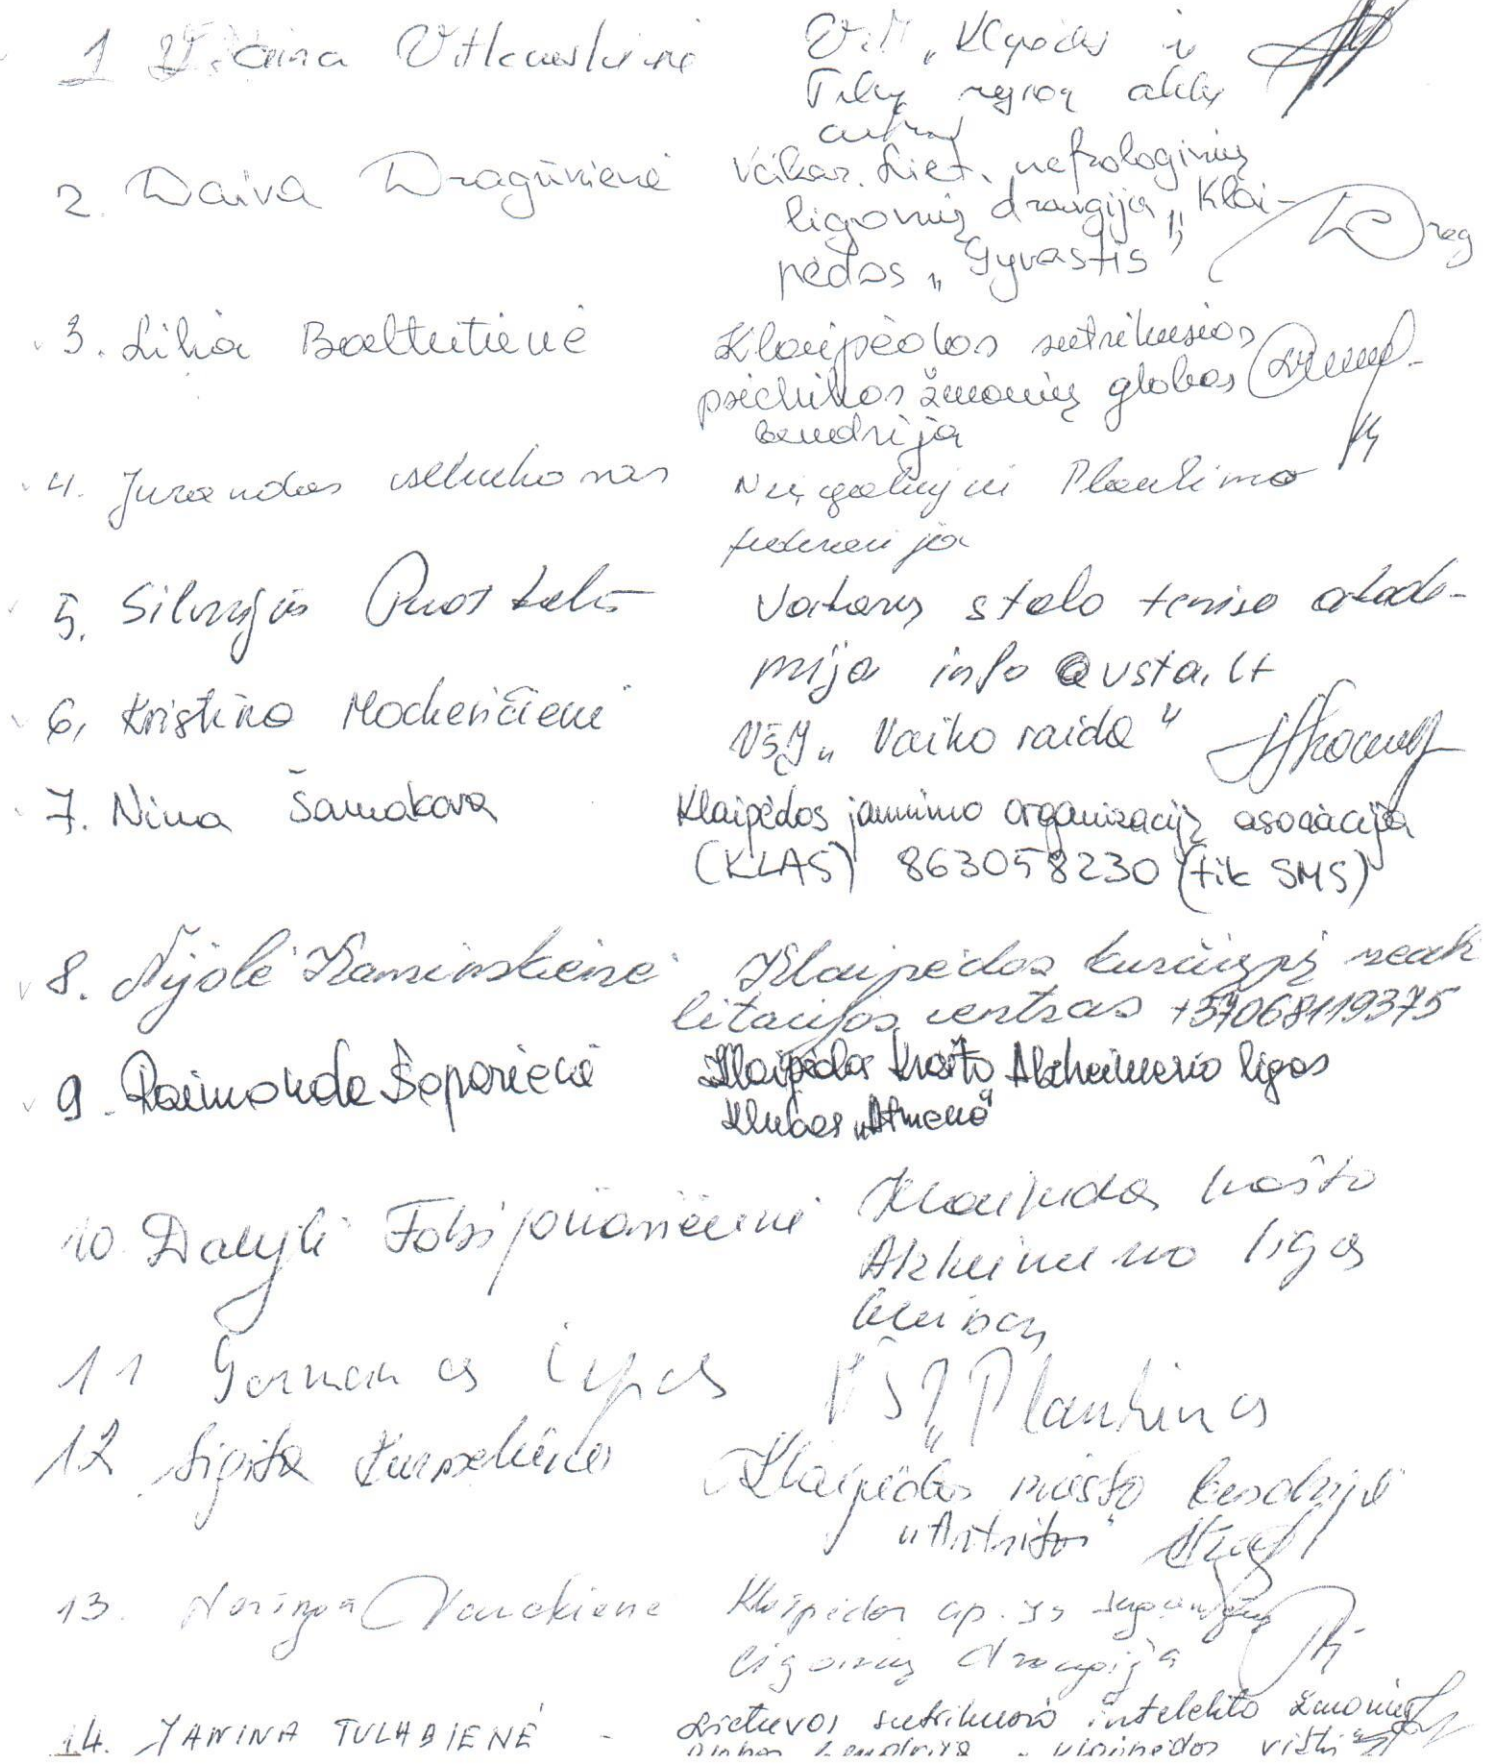 1 Vitkauskienė VšĮ „Klaipėdos ir
regionų aklųjų
centras
2. Daiva Dragūnienė Vakar. Liet. nefrologinių
ligonių draugija „Klai-
pėdos „Gyvastis"
Drag
3. Lilija Baltutienė Klaipėdos sutrikusios
psichikos žmonių globos
bendrija
4. Neįgaliųjų Plaukimo
federacija
5. Silvijus Vakarų stalo teniso akade-
mija info@vsta.lt
6. Kristina Mockevičienė VšĮ „Vaiko raida"
7. Nina Šamakova Klaipėdos jaunimo organizacijų asociacija
(KLAS) 863058230 (tik SMS)
8. Nijolė Kaminskienė Klaipėdos kurčiųjų reabi
litacijos centras +37068119375
9. Raimonda Šeporienė Klaipėdos krašto Alzheimerio ligos
klubas „Atmena"
10. Klaipėdos krašto
Alzheimerio ligos
klubas
11 German as VšĮ „Plaukimas
12 Sigita Klaipėdos miesto bendrija
„Artritas"
13. Neringa Klaipėdos ap.
ligonių draugija
14. JANINA TULABIENĖ - Lietuvos sutrikusio intelekto žmonių
globos bendrija Klaipėdos viltis